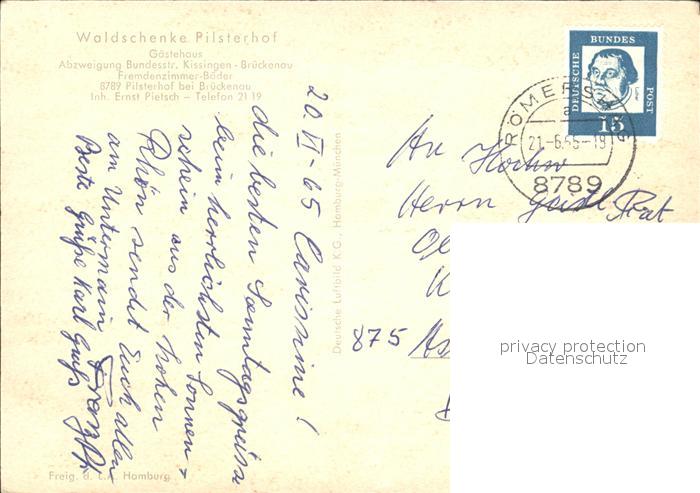 Waldschenke Pilsterhof
Gästehaus
Abzweigung Bundesstr. Kissingen - Brückenau
Fremdenzimmer-Bäder
8789 Pilsterhof bei Brückenau
Inh. Ernst Pietsch - Telefon 21 19
20. VI - 65 Carissime!
die besten Sonntagsgrüsse
beim herrlichsten Sonnen-
schein aus der hohen
Rhön sendet Euch allen
am Untermain Franz
Beste Grüße Karl
Deutsche Luftbild K G., Hamburg-München
DEUTSCHE BUNDES POST
15
21.-6.65-19
8789
An Hochw
Herrn Geistl. Rat
875
privacy protection
Datenschutz
Freig. d. L.A. Hamburg